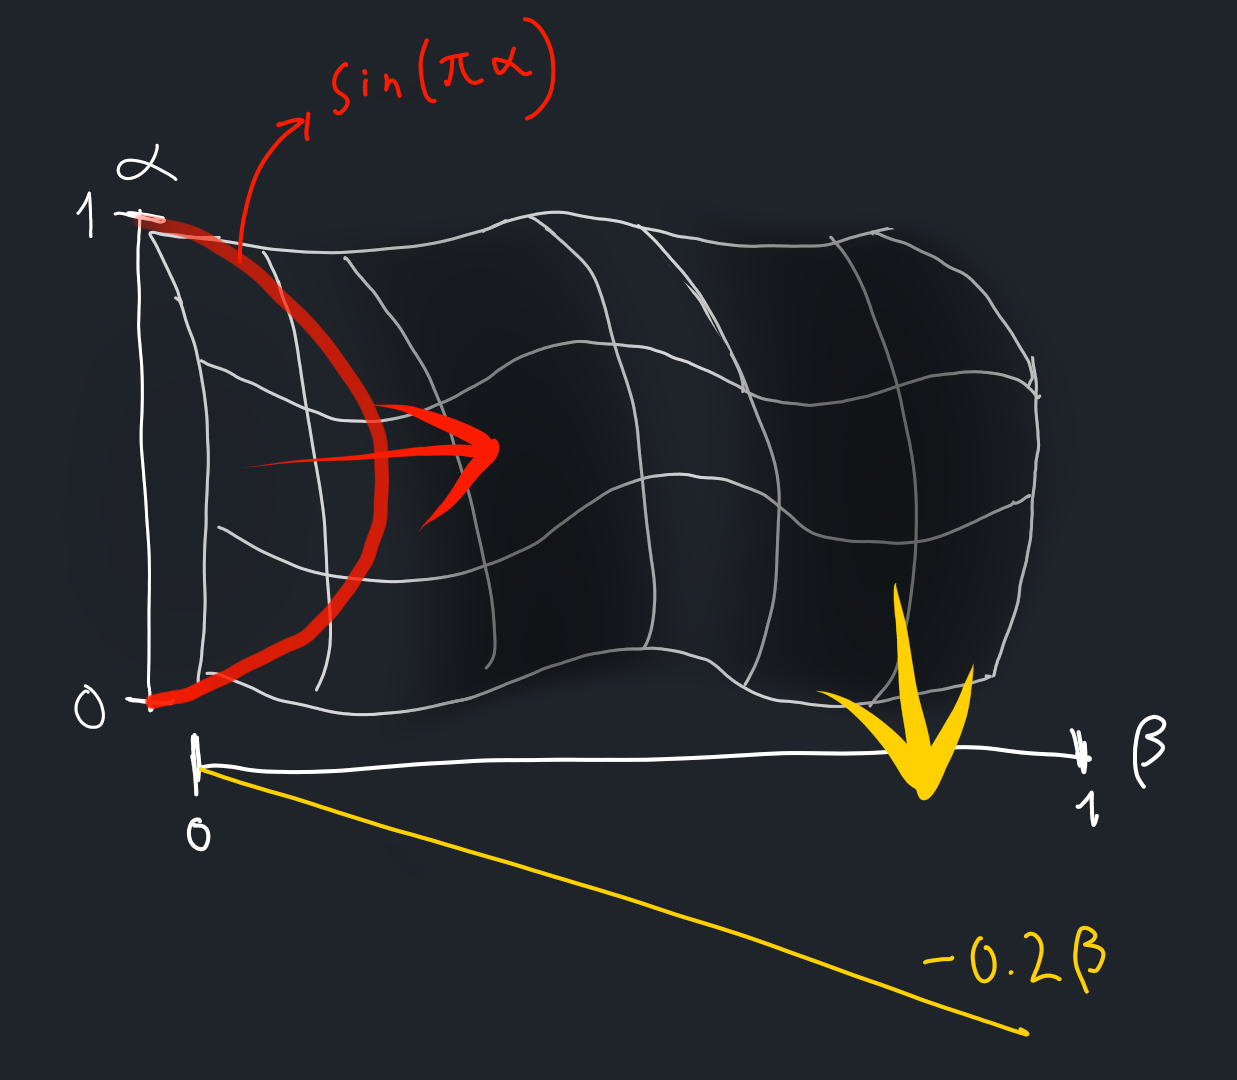 sin(πα)
α
1
0
β
0
1
-0.2β